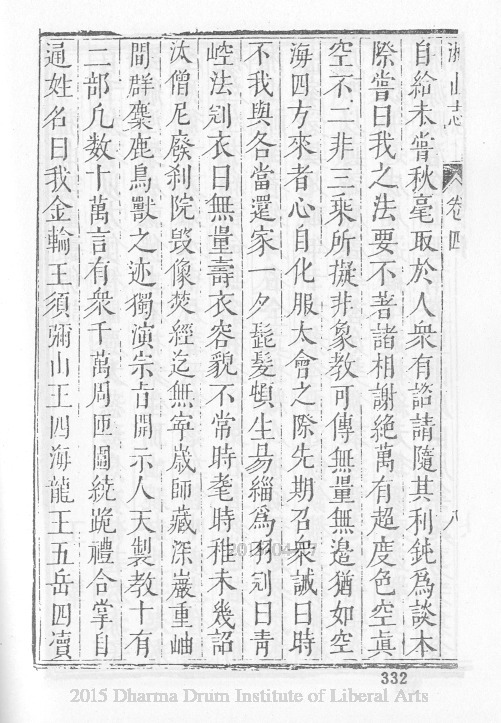 湘山志 卷四 八
自給未嘗秋毫取於人衆有諮請隨其利鈍爲談本
際嘗曰我之法要不著諸相謝絕萬有超度色空眞
空不二非三乘所擬非象教可傳無量無邉猶如空
海四方來者心自化服太會之際先期召衆誡曰時
不我與各當還家一夕髭髮頓生易緇爲羽剙曰青
崆法剙衣曰無量壽衣容貌不常時耄時稚未幾詔
汰僧尼廢刹院毁像焚經迄無寕歳師藏深巖重岫
間群麋鹿鳥獸之迹獨演宗旨開示人天製教十有
二部凢数十萬言有衆千萬周匝圍繞跪禮合掌自
通姓名曰我金輪王須彌山王四海龍王五岳四瀆
332
2015 Dharma Drum Institute of Liberal Arts